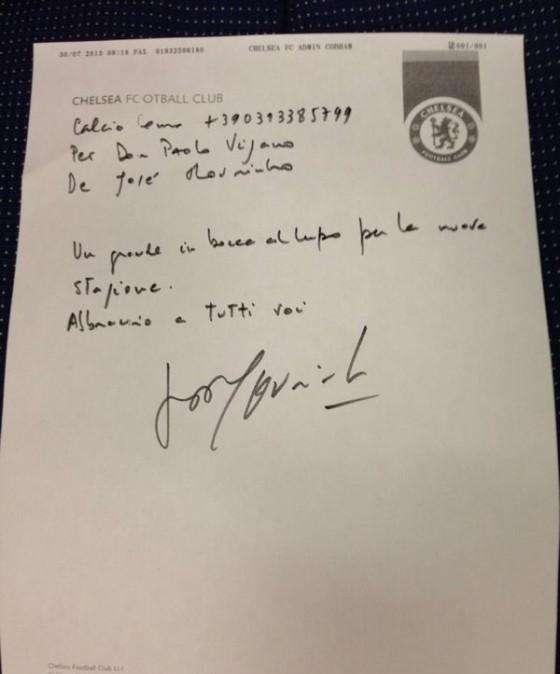 30/07 2013 09:16 FAX 01932596180 CHELSEA FC ADMIN COBHAM 001/001
CHELSEA FC OTBALL CLUB
CHELSEA
FOOTBALL CLUB
Calcio Como +390313385799
Per Don Paolo Vigano
De José Mourinho
Un grande in bocca al lupo per la nuova
stagione.
Abbraccio a tutti voi
Chelsea Football Club